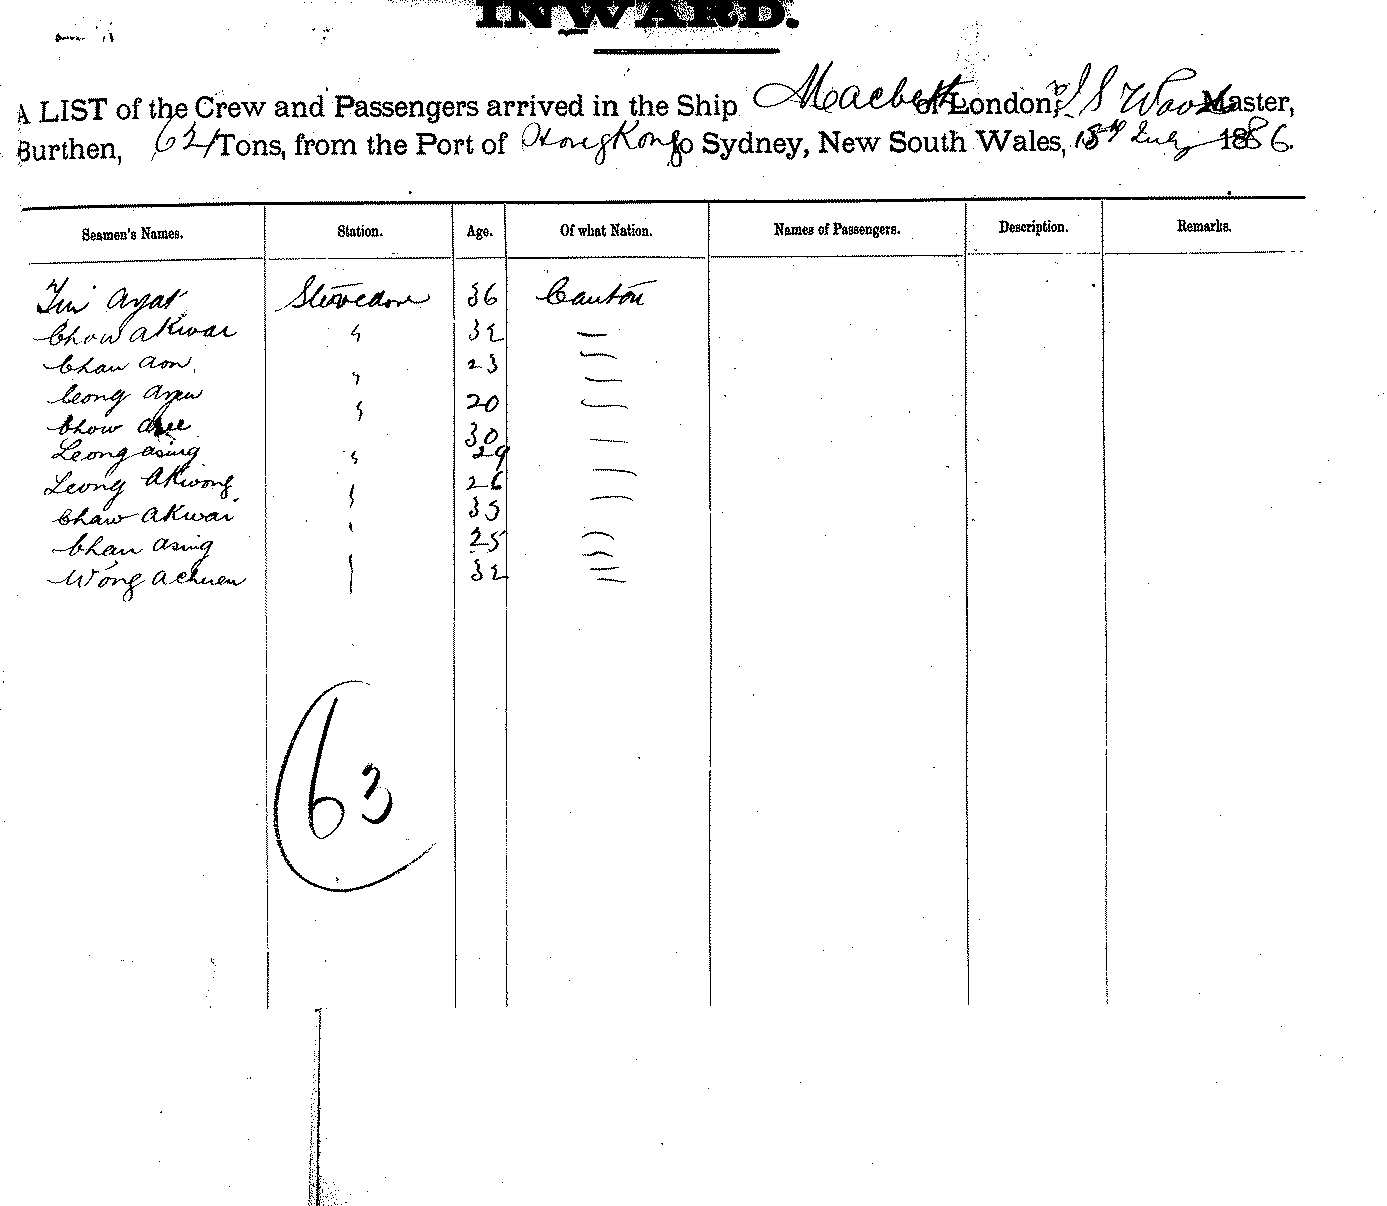 INWARD.
A LIST of the Crew and Passengers arrived in the Ship Macbeth of London, J S Wood Master,
Burthen, 621 Tons, from the Port of HongKong to Sydney, New South Wales, 18th July 1886.
Seamen's Names. Station. Age. Of what Nation. Names of Passengers. Description. Remarks.
Ayat Stevedore 36 Canton
Chow Akwai " 32 —
Chan Aon 23 —
" —
Leong 20 —
"
Chow 30 —
Leong Asing " 29
Leong Akwong 26 —
" —
Chaw Akwai 35
"
Chan Asing 25 —
—
Wong Achuen 32 —
—
63